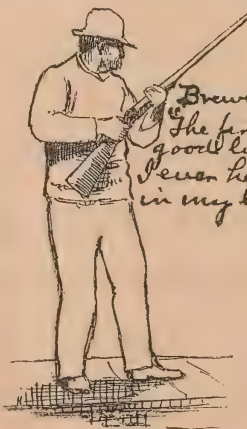 Brewe
"The fin
goods li
I ever he
in my l